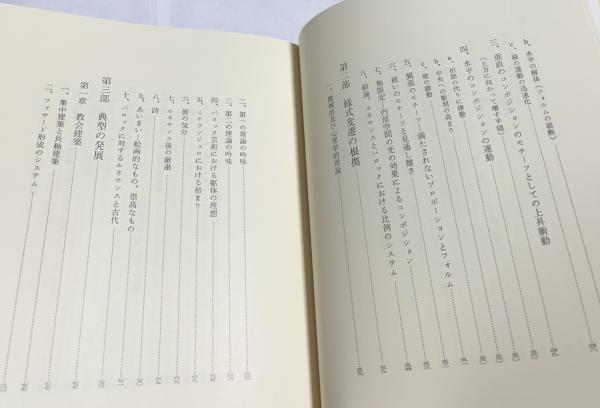 b、水平の解体(フォルムの鼓動)
c、線の運動の迅速化
三、垂直のコンポジションのモチーフとしての上昇衝動
(上方に向かって増す平穏)
四、水平のコンポジションの運動
a、拍節の代りに律動
b、中央への彫刻の高まり
c、壁の鼓動
五、緊張のモチーフ 満たされないプロポーションとフォルム
六、被いのモチーフと見通し難さ
七、無限定―内部空間の光の効果によるコンポジション
八、結論。ルネサンスとバロックにおける比例のシステム
第二部 様式変遷の根拠
一、機械的及び心理学的理論
二、第一の理論の吟味
三、第二の理論の吟味
四、バロック芸術における躯体の理想
五、ミケランジェロにおける初まり
六、彼の気分
七、ルネサンス後の厳粛
八、詩
九、あいまい―絵画的なもの、崇高なもの
十、バロックに対するルネサンスと古代
第三部 典型の発展
第一章 教会建築
一、集中建築と長軸建築
二、ファサード形成のシステム